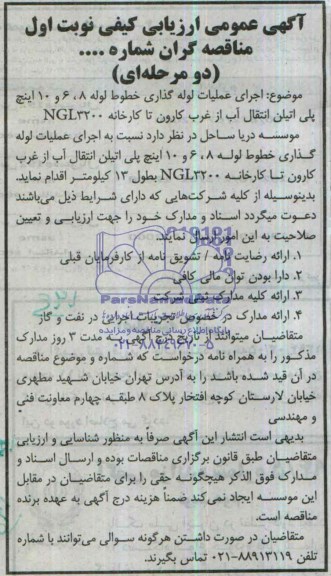 آگهی عمومی ارزیابی کیفی نوبت اول
مناقصه گران شماره ....
(دو مرحله‌ای)
موضوع: اجرای عملیات لوله گذاری خطوط لوله ۸، ۶ و ۱۰ اینچ
پلی اتیلن انتقال آب از غرب کارون تا کارخانه NGL۳۲۰۰
موسسه دریا ساحل در نظر دارد نسبت به اجرای عملیات لوله
گذاری خطوط لوله ۸، ۶ و ۱۰ اینچ پلی اتیلن انتقال آب از غرب
کارون تا کارخانه NGL۳۲۰۰ بطول ۱۳ کیلومتر اقدام نماید.
بدینوسیله از کلیه شرکت‌هایی که دارای شرایط ذیل می‌باشند
دعوت میگردد اسناد و مدارک خود را جهت ارزیابی و تعیین
صلاحیت به این امور ارسال نمایند.
۱. ارائه رضایت نامه / تشویق نامه از کارفرمایان قبلی
۲. دارا بودن توان مالی کافی
۳. ارائه کلیه مدارک ثبتی شرکت
۴. ارائه مدارک در خصوص تجربیات اجرایی در نفت و گاز
متقاضیان میتوانند از تاریخ درج آگهی به مدت ۳ روز مدارک
مذکور را به همراه نامه درخواست که شماره و موضوع مناقصه
در آن قید شده باشد را به آدرس تهران خیابان شهید مطهری
خیابان لارستان کوچه افتخار پلاک ۸ طبقه چهارم معاونت فنی
و مهندسی
بدیهی است انتشار این آگهی صرفاً به منظور شناسایی و ارزیابی
متقاضیان طبق قانون برگزاری مناقصات بوده و ارسال اسناد و
مدارک فوق الذکر هیچگونه حقی را برای متقاضیان در مقابل
این موسسه ایجاد نمی‌کند ضمناً هزینه درج آگهی به عهده برنده
مناقصه است.
متقاضیان در صورت داشتن هرگونه سوالی می‌توانند با شماره
تلفن ۸۸۹۱۳۱۱۹-۰۲۱ تماس بگیرند.